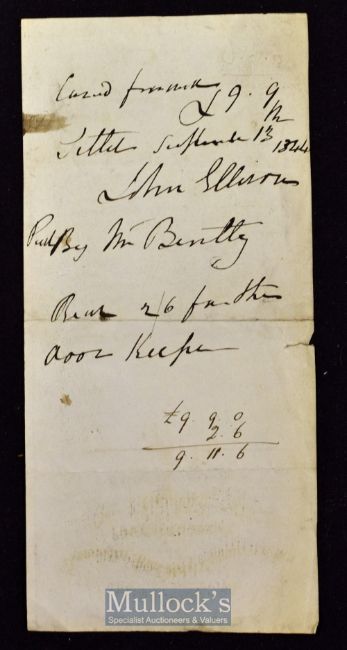 £9. 9
Settled September 13 1844
John Ellison
Paid By Mr Bentley
2/6 for the
door Keeper
£9. 9. 0
2. 6
9. 11. 6
Mullock's
Specialist Auctioneers & Valuers